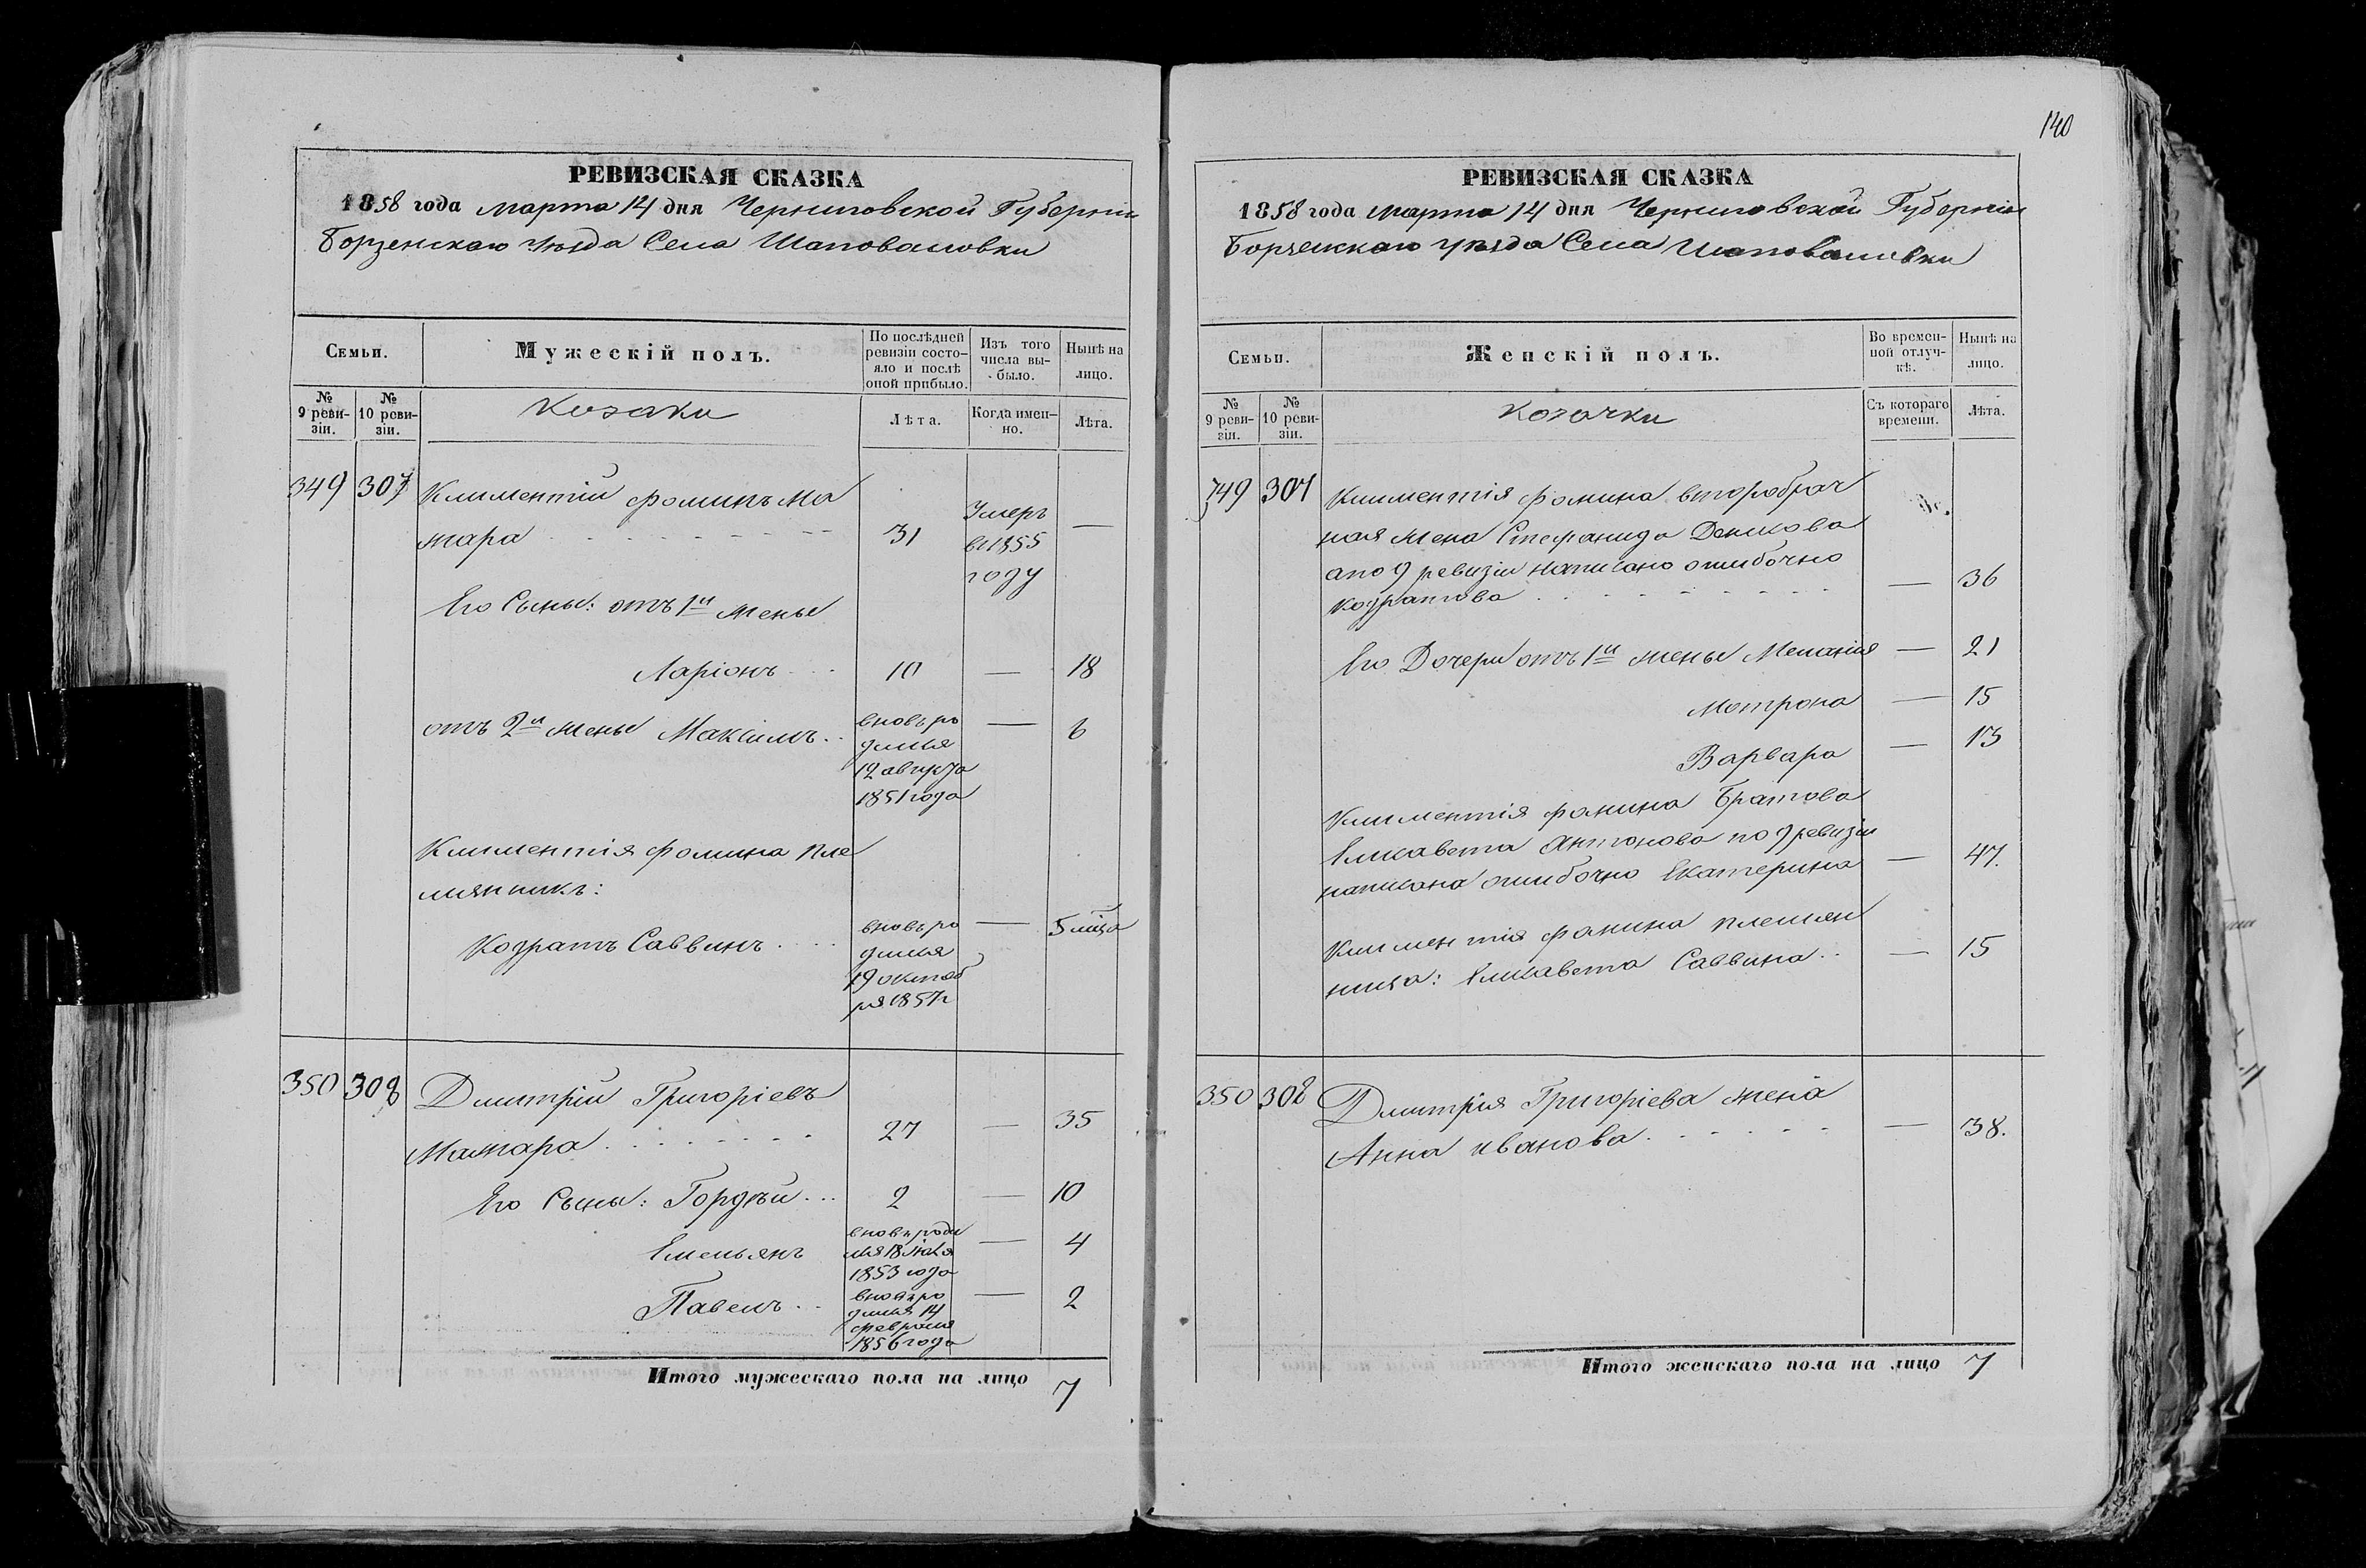 РЕВИЗСКАЯ СКАЗКА
1858 года марта 14 дня Черниговской Губерніи
Борзенскаго уѣзда Села Шаповаловки
Семьи.
Мужескій полъ.
По послѣдней
ревизіи состо-
яло и послѣ
оной прибыло.
Изъ того
числа вы-
было.
Нынѣ на
лицо.
№
9 реви-
зіи.
№
10 реви-
зіи.
Козаки
Лѣта.
Когда имен-
но.
Лѣта.
349 307 Климентій Фоминъ Ма
жара 31 Умеръ
в 1855
году —
Его Сыны: отъ 1й жены
Ларіонъ 10 — 18
отъ 2й жены Максимъ вновь ро — 6
дился
12 августа
1851 года
Климентія Фомина пле
мянникъ:
Кодратъ Саввинъ вновь ро — 5 м͠ца
дился
19 октяб
ря 1857 г
350 308 Дмитрій Григоріевъ
Мажара 27 — 35
Его Сыны: Гордѣй 2 — 10
Емельянъ вновь роди — 4
лся 18 Іюля
1853 года
Павелъ вновь ро — 2
дился 14
февраля
1856 года
Итого мужескаго пола на лицо 7
140
РЕВИЗСКАЯ СКАЗКА
1858 года марта 14 дня Черниговской Губерніи
Борзенскаго уѣзда Села Шаповаловки
Семьи.
Женскій полъ.
Во времен-
ной отлуч-
кѣ.
Нынѣ на
лицо.
№
9 реви-
зіи.
№
10 реви-
зіи.
козачки
Съ котораго
времени.
Лѣта.
349 307 Климентія Фомина второбрач
ная жена Стефанида Денисова
а по 9 ревизіи написано ошибочно
Кодратова — 36
Его Дочери отъ 1й жены Меланія — 21
Мотрона — 15
Варвара — 13
Климентія Фомина Братова
Елисавета Антонова по 9 ревизіи
написана ошибочно Екатерина — 47.
Климентія Фомина племян
ница: Елисавета Саввина — 15
350 308 Дмитрія Григоріева жена
Анна Иванова — 38.
Итого женскаго пола на лицо 7